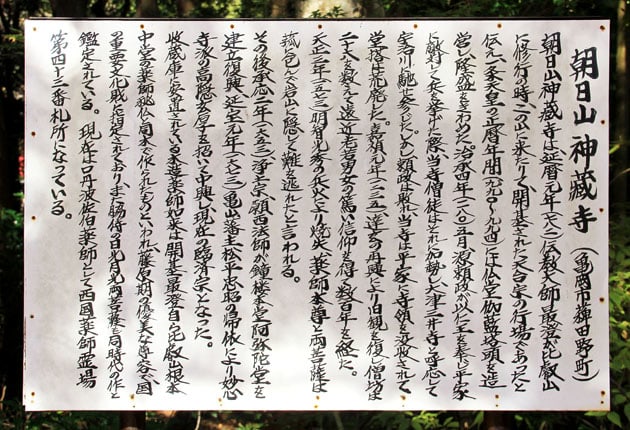 朝日山 神蔵寺 (亀岡市稗田野町)
朝日山神蔵寺は延暦元年(七八二)伝教大師最澄が比叡山
に修行の時、この山に来たりて開基された天台宗の行場であったと
伝え、一条天皇の正暦年間(九九〇〜九九四)には仏堂伽藍塔頭を造
営し隆盛をきわめた。治承四年(一一八〇)五月源頼政が以仁王を奉じ平家
に敵対して兵を挙げた際当寺僧徒はそれに加勢し大津三井寺と呼応して
宇治川に馳せ参じた。しかし頼政は敗れ当寺は平家に寺領を没収されて
堂塔は荒廃した。嘉禎元年(一二三五)達玄の再興により旧観を復し僧坊は
二十六を数えて遠近老若男女の篤い信仰を得て数百年を経た。
天正三年(一五七三)明智光秀の兵火により焼失、薬師本尊と両菩薩は
菰に包んで岩山に隠して難を逃れたと言われる。
その後承応二年(一六五三)浄土宗願西法師が鐘楼本堂阿弥陀堂を
建立復興、延宝元年(一六七三)亀山藩主松平忠昭の帰依により妙心
寺派の高隠玄厚子を招いて中興し現在の臨済宗となった。
収蔵庫に安置されている木造薬師如来は開基最澄自ら比叡山根本
中堂の薬師秘仏と同木で作られたものといわれ、藤原期の優美な尊容は国
の重要文化財に指定されており、また脇侍の日光月光両菩薩も同時代の作と
鑑定されている。現在は口丹波佐伯薬師として西国薬師霊場
第四十三番札所になっている。